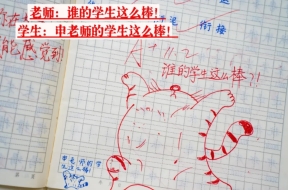 老师：谁的学生这么棒！
学生：申老师的学生这么棒！
衔接
能感觉到
A+
谁的学生这么棒?!
申老师的学
生这么棒!